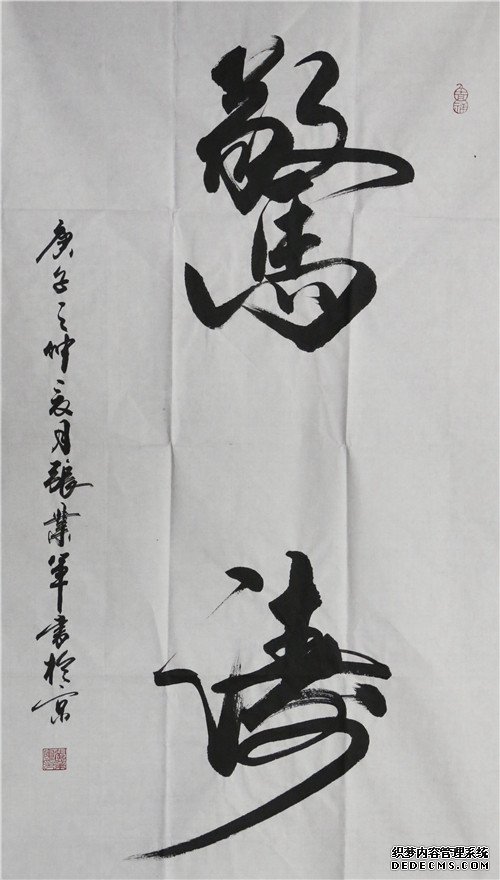 驚濤
庚子之仲夏月張業軍書於京
织梦内容管理系统
DEDECMS.COM